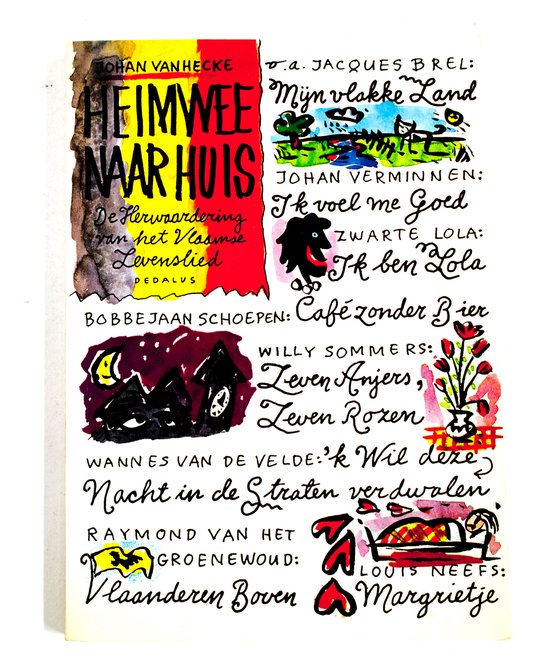 JOHAN VANHECKE
HEIMWEE
NAAR HUIS
De Herwaardering
van het Vlaamse
Levenslied
DEDALUS
o.a. JACQUES BREL:
Mijn vlakke Land
JOHAN VERMINNEN:
Ik voel me Goed
ZWARTE LOLA:
Ik ben Lola
BOBBEJAAN SCHOEPEN: Café zonder Bier
WILLY SOMMERS:
Zeven Anjers,
Zeven Rozen
WANNES VAN DE VELDE: 'k Wil deze
Nacht in de Straten verdwalen
RAYMOND VAN HET
GROENEWOUD:
Vlaanderen Boven
LOUIS NEEFS:
Margrietje